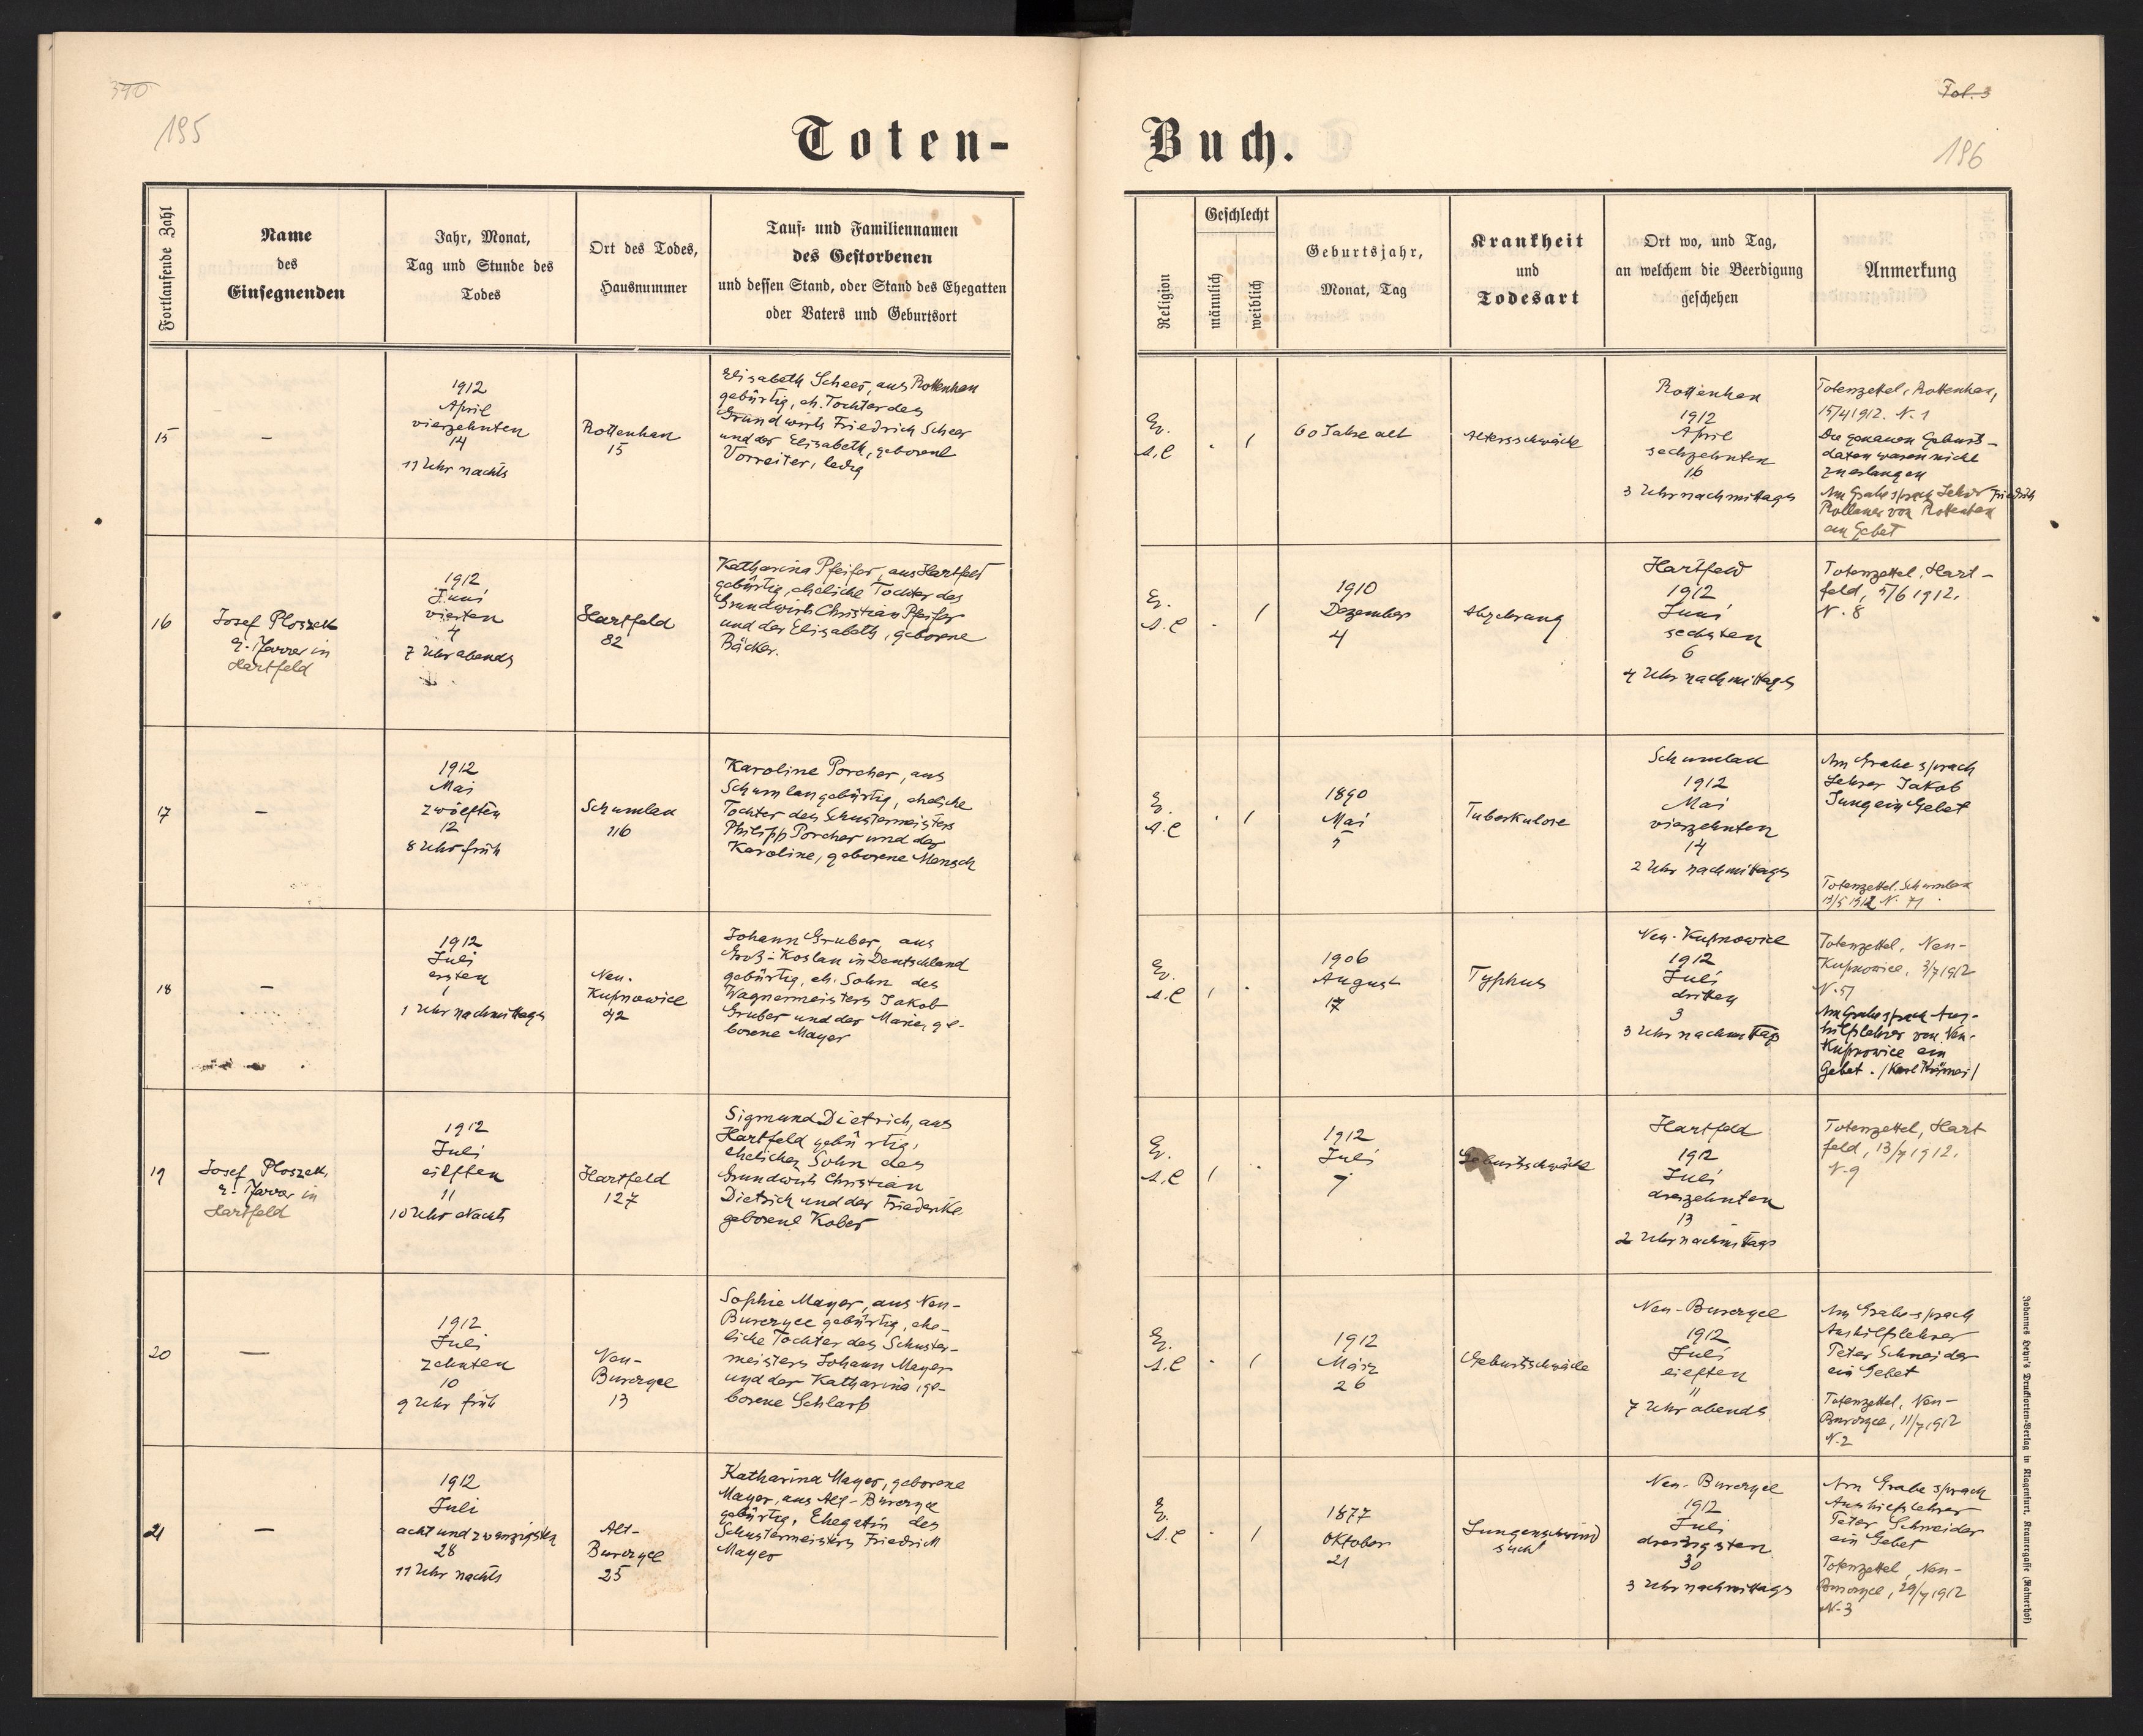 195
Toten-
Fortlaufende Zahl
Name
des
Einsegnenden
Jahr, Monat,
Tag und Stunde des
Todes
Ort des Todes,
Hausnummer
Tauf- und Familiennamen
des Gestorbenen
und dessen Stand, oder Stand des Ehegatten
oder Vaters und Geburtsort
15
—
1912
April
vierzehnten
14
11 Uhr nachts
Rottenhan
15
Elisabeth Scheer, aus Rottenhan
gebürtig, eh. Tochter des
Grundwirts Friedrich Scheer
und der Elisabeth, geborene
Vorreiter, ledig
16
Josef Ploszek
E. Pfarrer in
Hartfeld
1912
Juni
vierten
4
7 Uhr abends
Hartfeld
82
Katharina Pfeifer, aus Hartfeld
gebürtig, eheliche Tochter des
Grundwirts Christian Pfeifer
und der Elisabeth, geborene
Bäcker.
17
—
1912
Mai
zwölften
12
8 Uhr früh
Schumlau
116
Karoline Porcher, aus
Schumlau gebürtig, eheliche
Tochter des Schustermeisters
Philipp Porcher und der
Karoline, geborene Mensch
18
—
1912
Juli
ersten
1
1 Uhr nachmittags
Neu-
Kupnowice
42
Johann Gruber, aus
Groß-Koslau in Deutschland
gebürtig, eh. Sohn des
Wagnermeisters Jakob
Gruber und der Marie, ge-
borene Mayer
19
Josef Ploszek
E. Pfarrer in
Hartfeld
1912
Juli
eilften
11
10 Uhr Nachts
Hartfeld
127
Sigmund Dietrich, aus
Hartfeld gebürtig,
ehelicher Sohn des
Grundwirts Christian
Dietrich und der Friederike
geborene Kober
20
—
1912
Juli
zehnten
10
9 Uhr früh
Neu-
Burczyce
13
Sophie Mayer, aus Neu-
Burczyce gebürtig, ehe-
liche Tochter des Schuster-
meisters Johann Mayer
und der Katharina, ge-
borene Schlarp
21
—
1912
Juli
acht und zwanzigsten
28
11 Uhr nachts
Alt-
Burczyce
25
Katharina Mayer, geborene
Mayer, aus Alt-Burczyce
gebürtig, Ehegattin des
Schustermeisters Friedrich
Mayer
Fol. 3
196
Buch.
Religion
Geschlecht
männlich
weiblich
Geburtsjahr,
Monat, Tag
Krankheit
und
Todesart
Ort wo, und Tag,
an welchem die Beerdigung
geschehen
Anmerkung
Ev.
A.C
1
60 Jahre alt
Altersschwäche
Rottenhan
1912
April
sechzehnten
16
3 Uhr nachmittags
Totenzettel, Rottenhan,
15/4 1912. N. 1
Die genauen Geburts-
daten waren nicht
zu erlangen
Am Grabe sprach Lehrer Friedrich
von Rottenhan
ein Gebet
Ev.
A.C
1
1910
Dezember
4
Abzehrung
Hartfeld
1912
Juni
sechsten
6
4 Uhr nachmittags
Totenzettel, Hart-
feld, 5/6 1912.
N. 8
Ev.
A.C
1
1890
Mai
5
Tuberkulose
Schumlau
1912
Mai
vierzehnten
14
2 Uhr nachmittags
Am Grabe sprach
Lehrer Jakob
Jung ein Gebet
Totenzettel. Schumlau
13/5 1912 N. 71
Ev.
A.C
1
1906
August
17
Typhus
Neu-Kupnowice
1912
Juli
dritten
3
3 Uhr nachmittags
Totenzettel, Neu-
Kupnowice, 3/7 1912
N. 51
Am Grabe sprach Aus-
hilfslehrer von Neu-
Kupnowice ein
Gebet. /Karl Krämer/
Ev.
A.C
1
1912
Juli
7
Geburtsschwäche
Hartfeld
1912
Juli
dreizehnten
13
2 Uhr nachmittags
Totenzettel, Hart
feld, 13/7 1912.
N. 9
Ev.
A.C
1
1912
März
26
Geburtsschwäche
Neu-Burczyce
1912
Juli
eilften
11
7 Uhr abends
Am Grabe sprach
Aushilfslehrer
Peter Schneider
ein Gebet
Totenzettel, Neu-
Burczyce, 11/7 1912
N. 2
Ev.
A.C
1
1877
Oktober
21
Lungenschwind
sucht
Neu-Burczyce
1912
Juli
dreißigsten
30
3 Uhr nachmittags
Am Grabe sprach
Aushilfslehrer
Peter Schneider
ein Gebet
Totenzettel, Neu-
Burczyce, 29/7 1912
N. 3
Johannes Heyn's Drucksorten-Verlag in Klagenfurt, Kramergasse (Rainerhof)